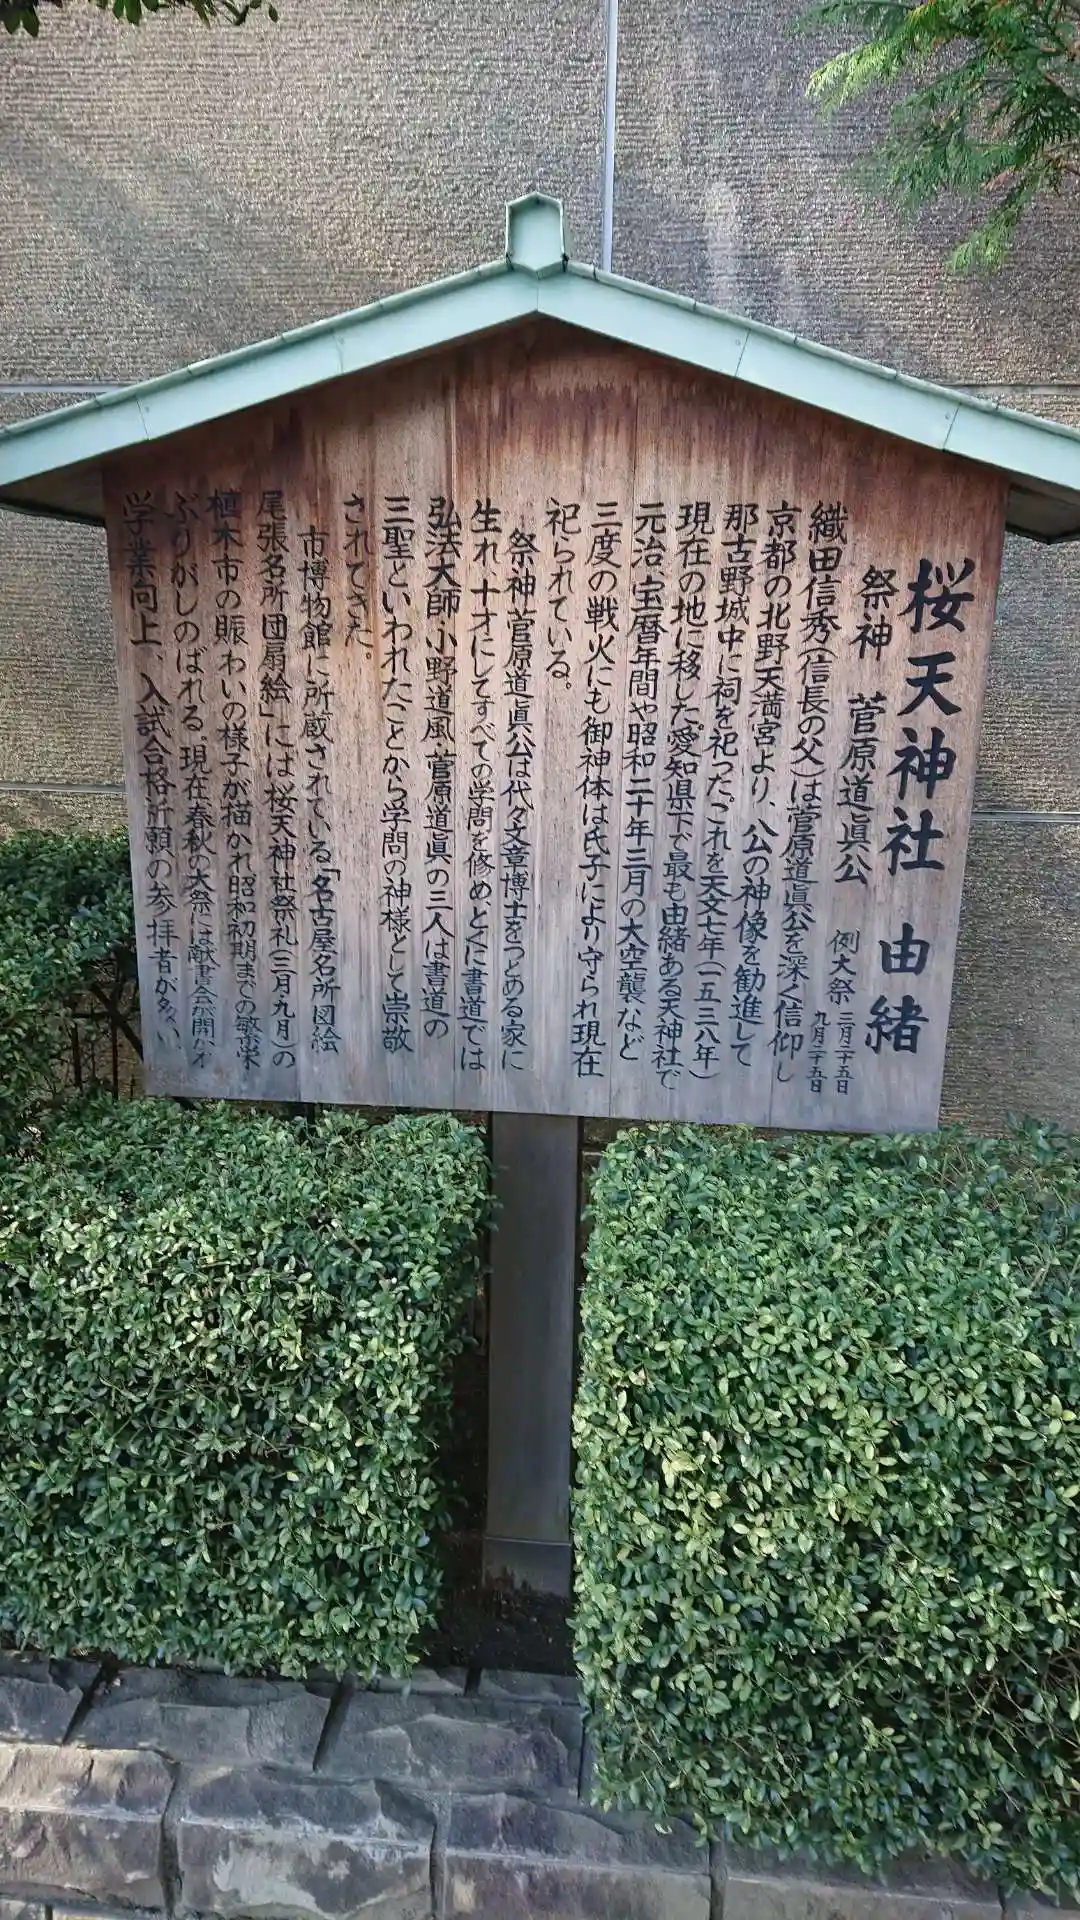 桜天神社 由緒
祭神 菅原道眞公
例大祭 三月二十五日
九月二十五日
織田信秀(信長の父)は菅原道眞公を深く信仰し
京都の北野天満宮より、公の神像を勧進して
那古野城中に祠を祀った。これを天文七年(一五三八年)
現在の地に移した。愛知県下で最も由緒ある天神社で
元治・宝暦年間や昭和二十年三月の大空襲など
三度の戦火にも御神体は氏子により守られ現在
祀られている。
祭神菅原道眞公は代々文章博士をつとめる家に
生れ、十才にしてすべての学問を修め、とくに書道では
弘法大師・小野道風・菅原道眞の三人は書道の
三聖といわれたことから学問の神様として崇敬
されてきた。
市博物館に所蔵されている「名古屋名所図絵
尾張名所団扇絵」には桜天神社祭礼(三月・九月)の
植木市の賑わいの様子が描かれ昭和初期までの繁栄
ぶりがしのばれる。現在春秋の大祭には献書会が開かれ
学業向上、入試合格祈願の参拝者が多い。